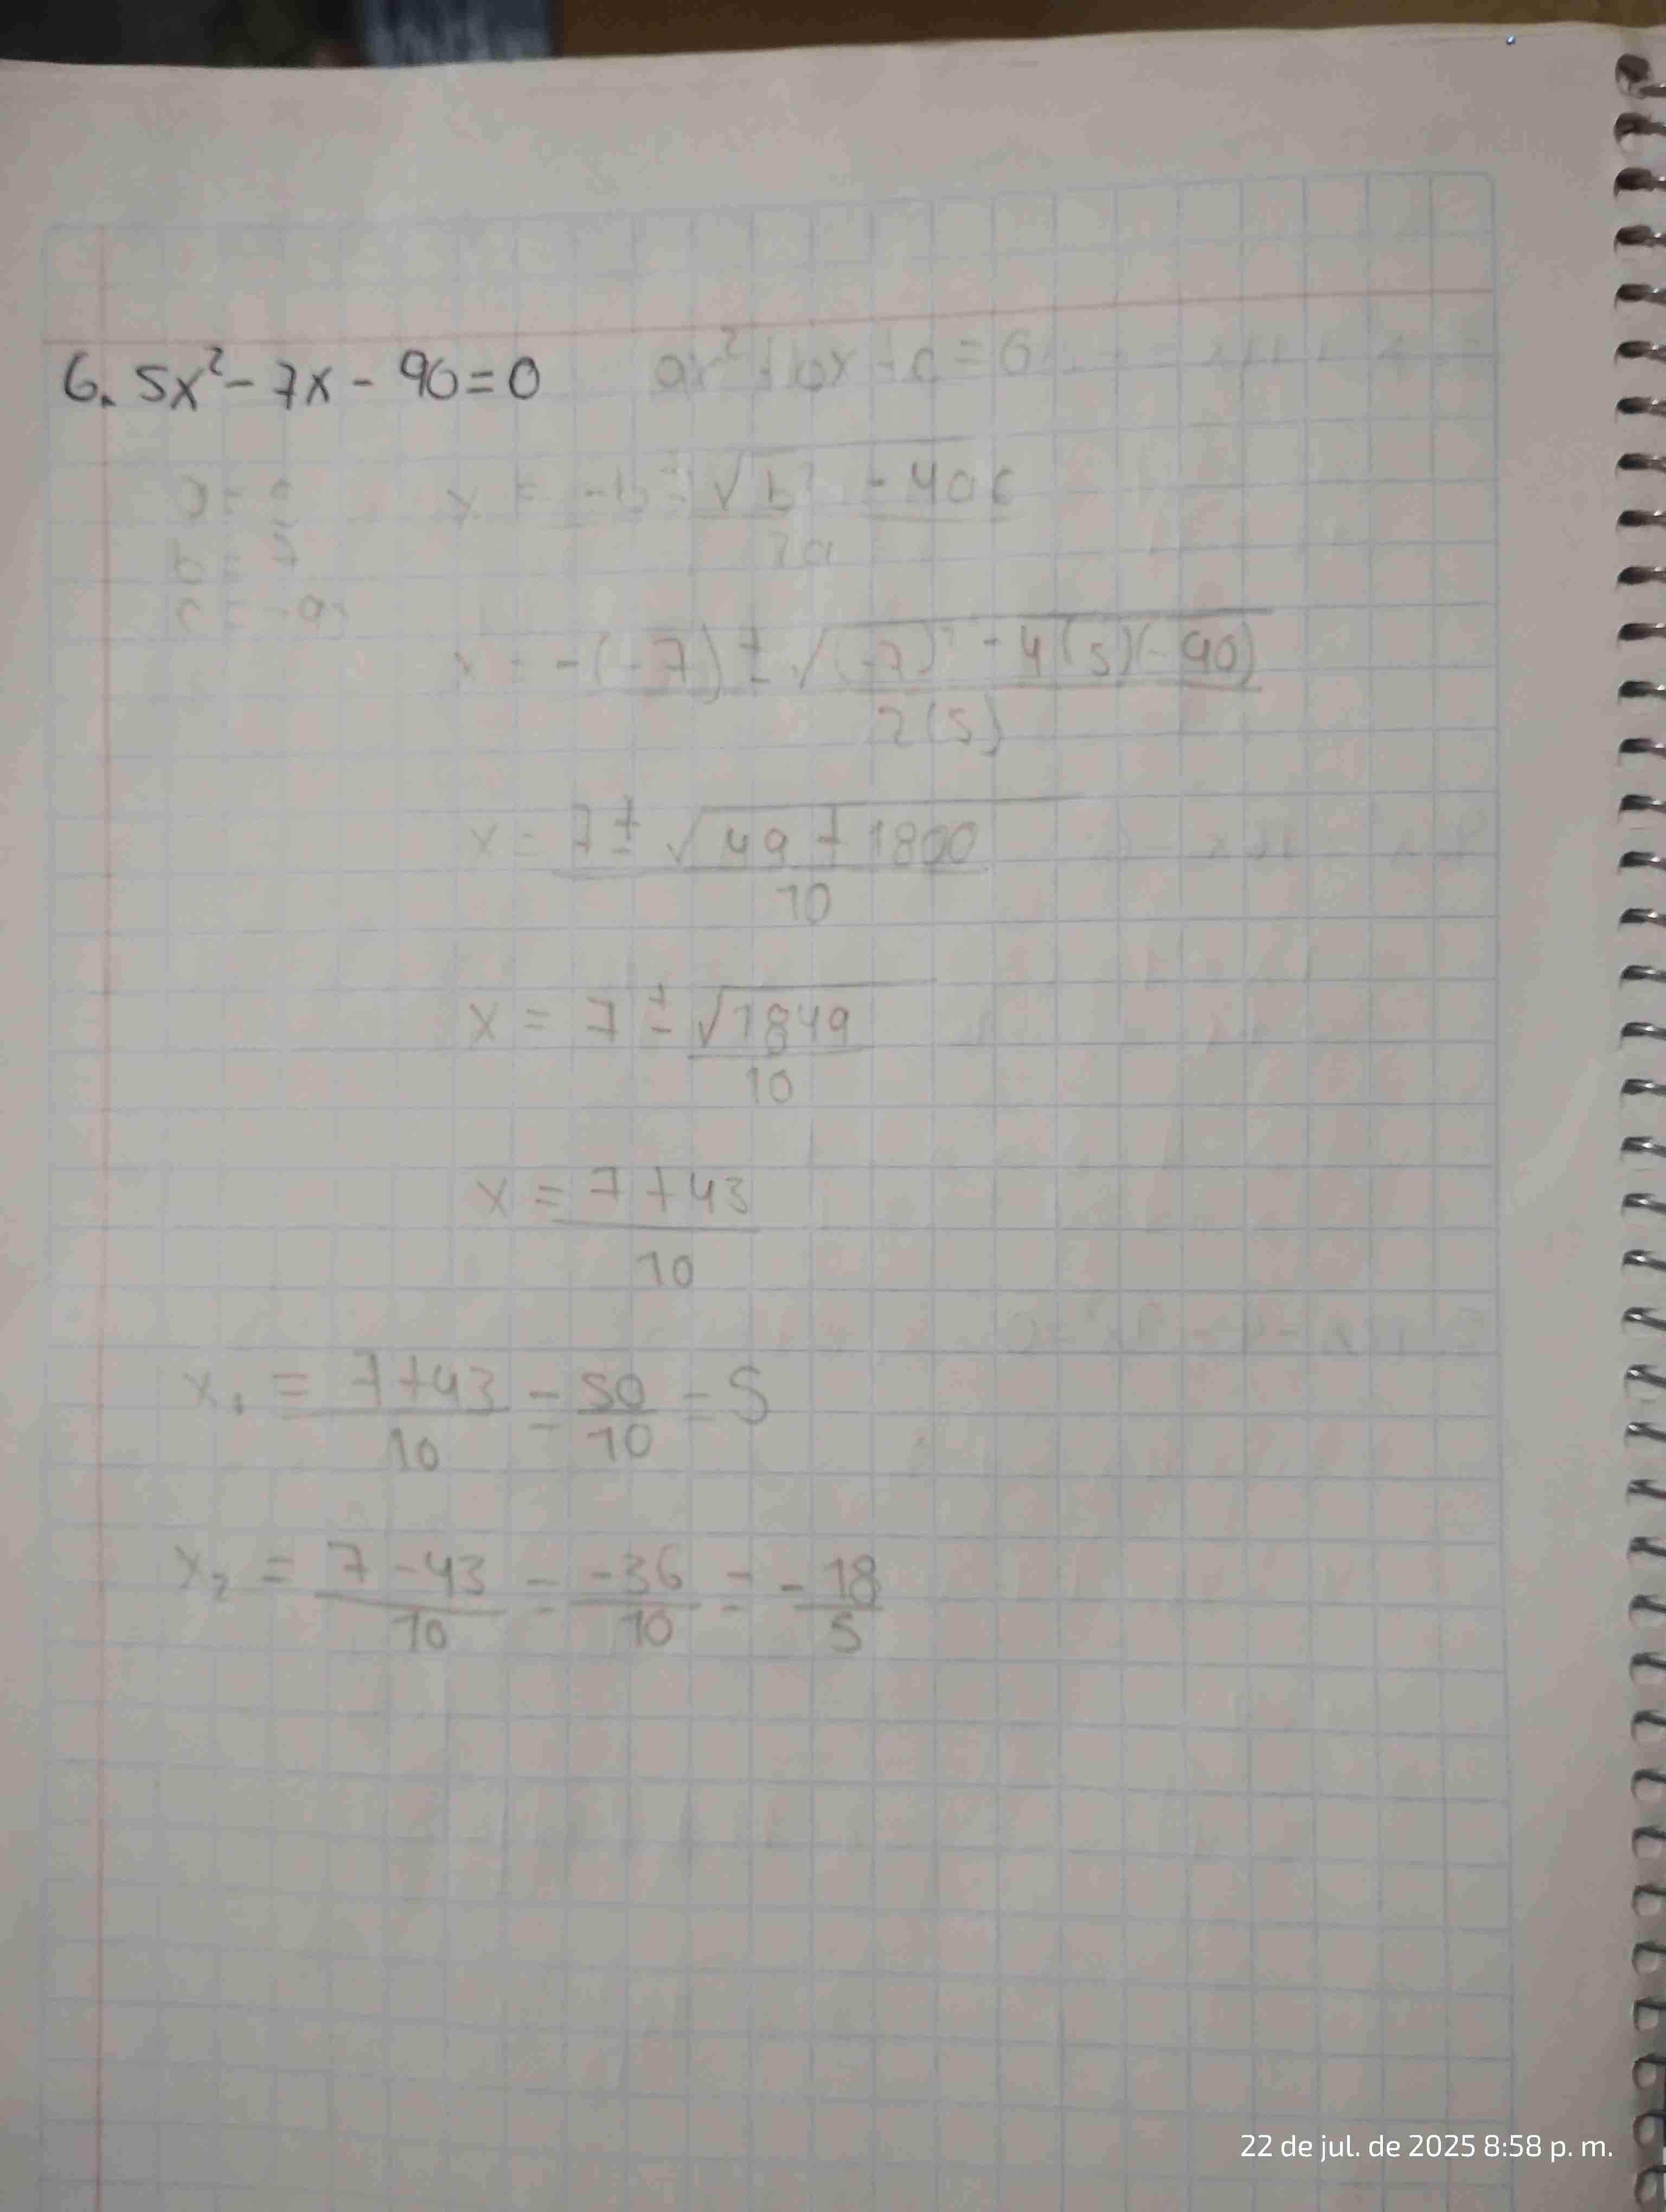 6. 5x² - 7x - 90 = 0 ax² + bx + c = 0
x = -b ± √b² - 4ac
2a
c = -90
x = -(-7) ± √(-7)² - 4(5)(-90)
2(5)
x = 7 ± √49 + 1800
10
x = 7 ± √1849
10
x = 7 + 43
10
x₁ = 7+43 = 50 = 5
10 10
x₂ = 7 - 43 = -36 = - 18
10 10 5
22 de jul. de 2025 8:58 p. m.